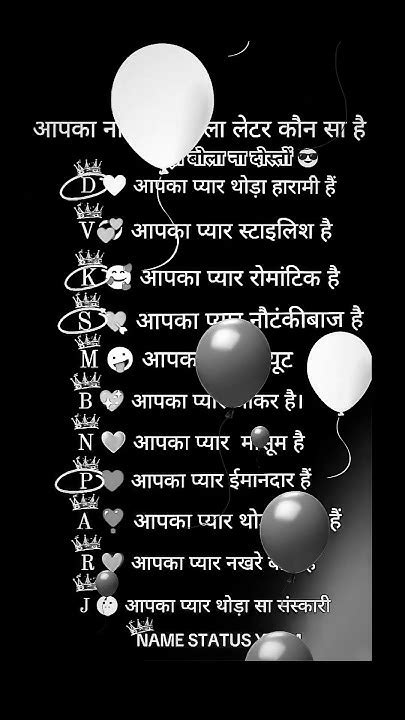 आपका ला लेटर कौन सा है
बोला ना दोस्तों 😎
D 🤍 आपका प्यार थोड़ा हारामी हैं
V 💞 आपका प्यार स्टाइलिश है
K 🥰 आपका प्यार रोमांटिक है
S 💘 आपका प्यार नौटंकीबाज है
M 🤪
B 💖 आपका है।
N 🤍 आपका प्यार मासूम है
P 🤍 आपका प्यार ईमानदार हैं
A ❣ आपका प्यार हैं
R 🤍 आपका प्यार नखरे
J आपका प्यार थोड़ा सा संस्कारी
NAME STATUS